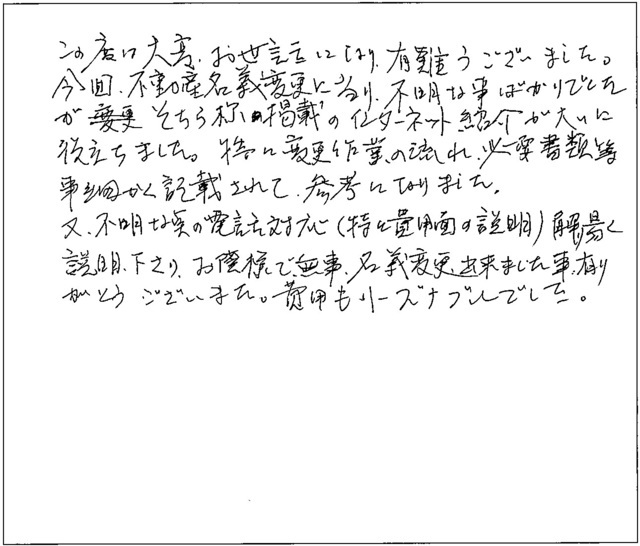 この度は大変、お世話になり、有難うございました。
今回、不動産名義変更に当り、不明な事ばかりでした
が 変更 そちら様の掲載のインターネット紹介が大いに
役立ちました。特に変更作業の流れ、必要書類等
事細かく記載されて、参考になりました。
又、不明な点の電話対応（特に費用面の説明）解り易く
説明下さり、お陰様で無事、名義変更出来ました事、有り
がとうございました。費用もリーズナブルでした。